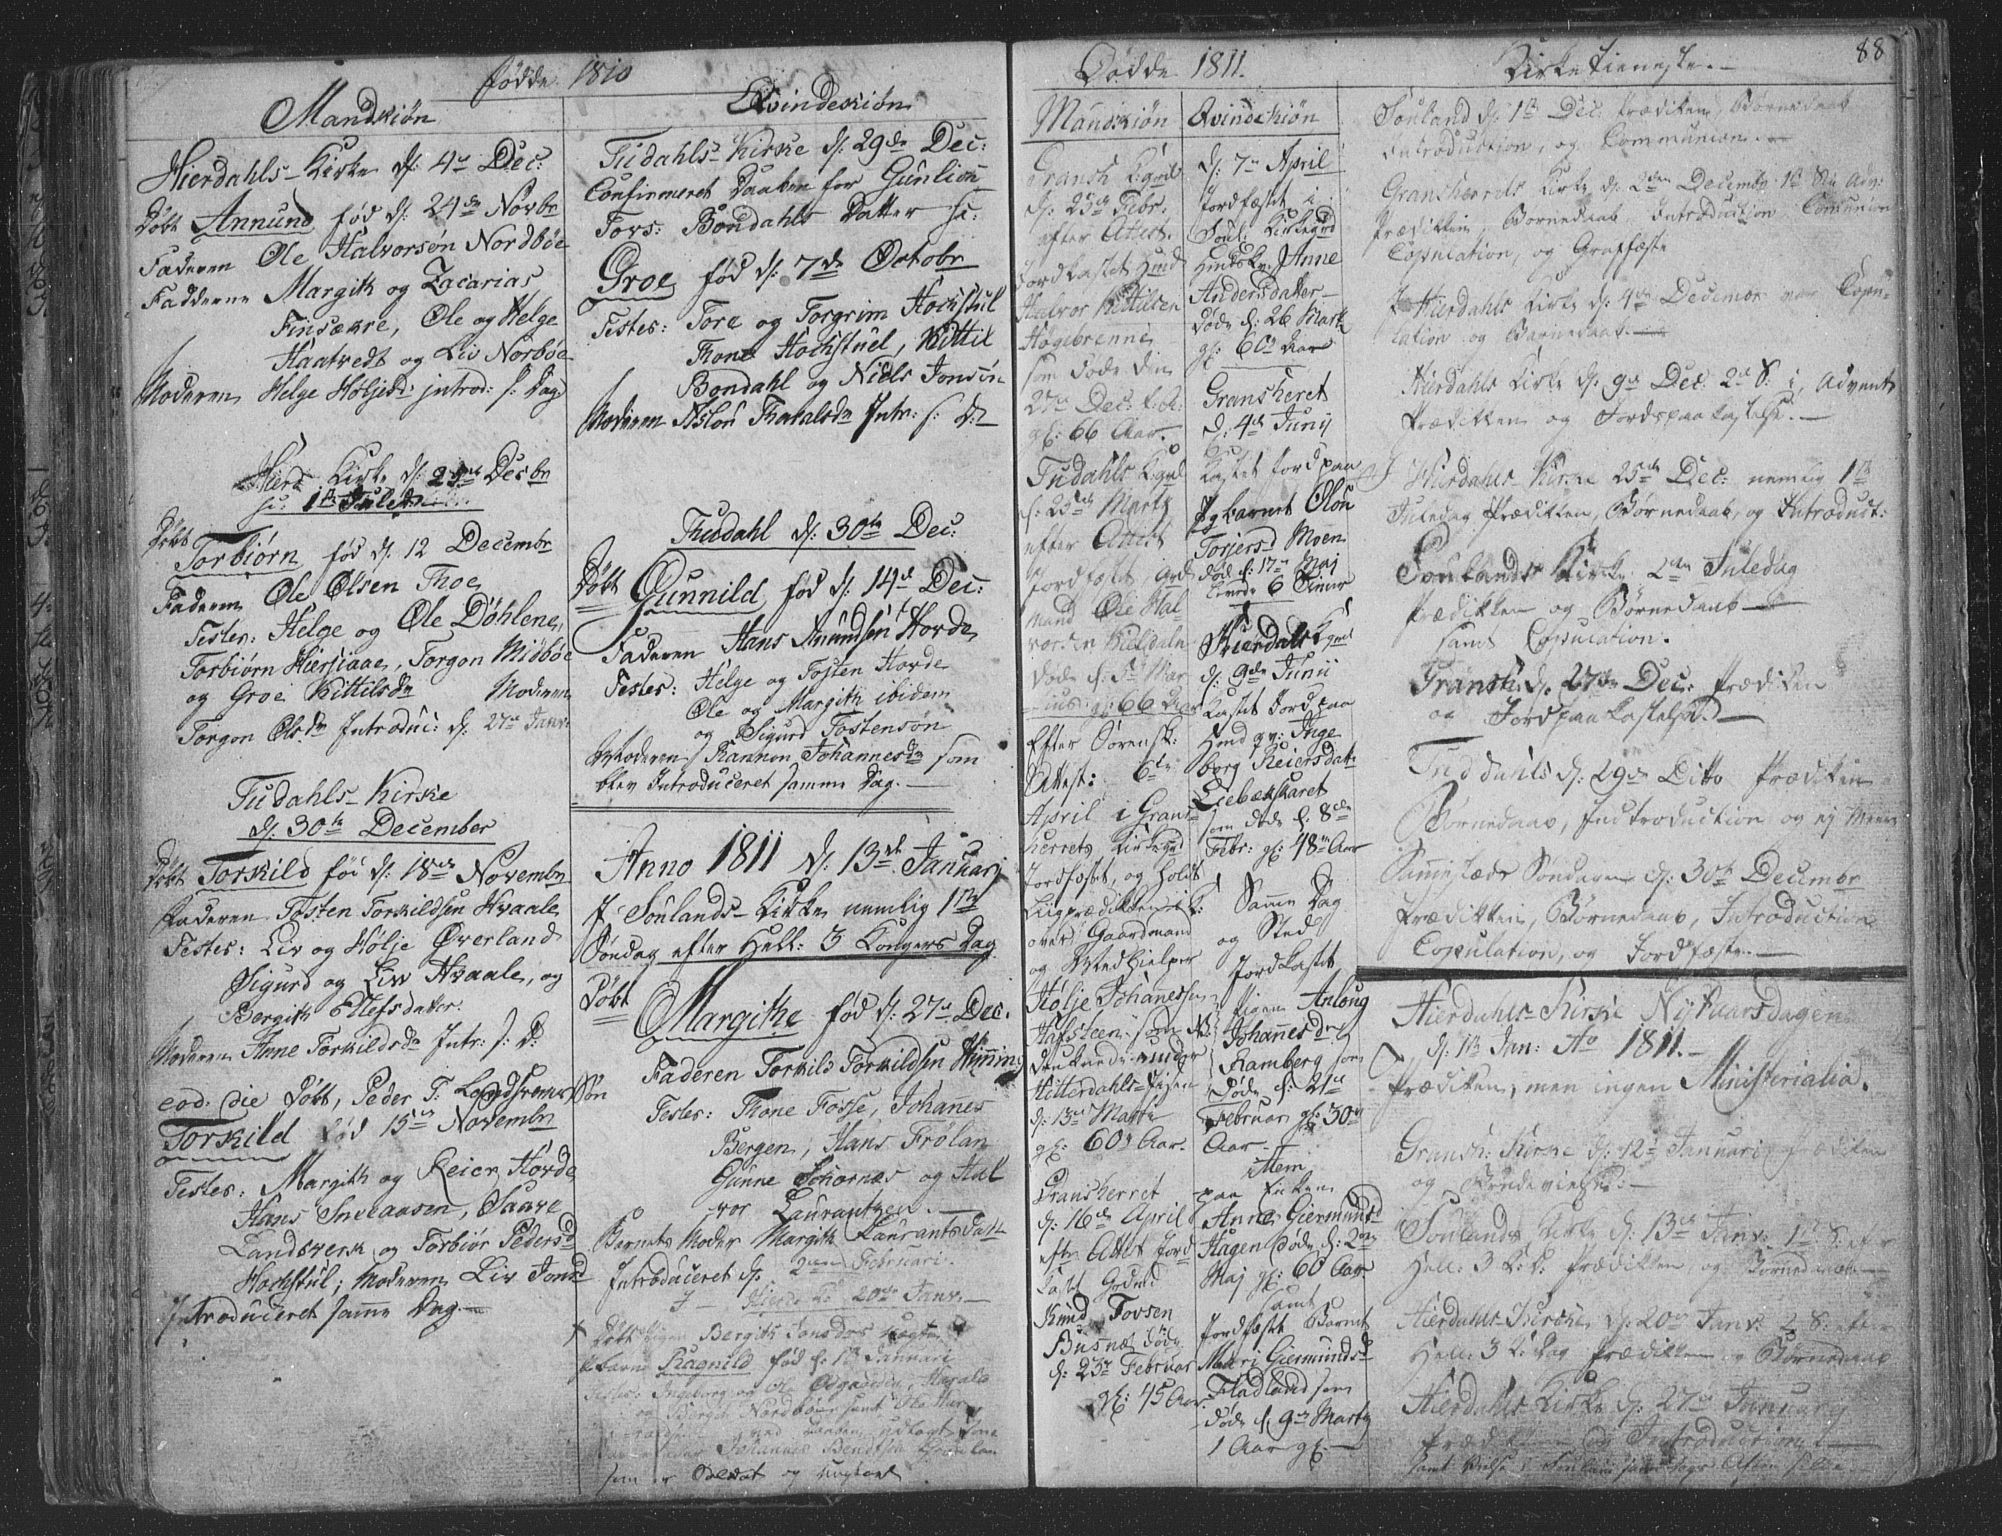 Fødde 1810
Mandkiøn
Hierdahls Kirke d: 4de Dec:
Døbt Annund fød d: 24de Novbr
Faderen Ole Halvorsøn Nordbøe
Fadderne Margith og Zacarias
Finsækre, Ole og Helge
Haatvedt og Liv Norbøe
Moderen Helge Høljed: introd: s: Dag
Hierd Kirke d: 25de Decbr
Døbt
Torbiørn fød d: 12 Decembr
Faderen Ole Olsen Thoe
Testes: Helge og Ole Døhlene,
Torbiørn Hiersiaae, Torgon Midbøe
og Groe Kittilsdr Moderen
Torgon Olsdr Introduc: d: 27de Janr
Tudahls Kirke
d: 30te December
Døbt Torkild fød d: 18de Novembr
Faderen Tosten Torkildsen Hvaale
Testes: Liv og Hølje Øverland
Sigurd og Liv Hvaale, og
Bergith Ellefsdater.
Moderen Anne Torkildsdr Intr: s: D:
eod: die Døbt, Peder T. Landsverk Søn
Torkild fød 15de Novembr
Testes: Margith og Reier Hovde
Hans Sneaasen, Saave
Landsverk og Torbiør Pedersd
Hochstul; Moderen Liv Jonsd
Introduceret samme Dag.
Qvindeskiøn
Tudahls Kirke d: 29de Dec:
Confirmeret Daaben for Gunlien
Tovs: Bondahls Datter
Groe fød d: 7de Octobr
Testes: Tore og Torgrim Hochstul
Thone Hochstuel, Kittil
Bondahl og Niels Jonsøn
Moderen Aslou Intr: s: D:
Tudahl d: 30te Dec:
Døbt Gunnild fød d: 14de Dec:
Faderen Hans Anundsen Hovde
Testes: Helge og Tosten Hovde
Ole og Margith ibidem
og Sigurd Tostensøn
Moderen Rannou Johannesdr som
blev Introduceret samme Dag.
Anno 1811 d: 13de Januarj
I Soulands Kirke nemlig 1ste
Søndag efter Hell: 3 Kongers Dag
Døbt
Margithe fød d: 27de Dec:
Faderen Torkild Torkildsen
Testes: Thone Fosse, Johanes
Bergen, Hans Frøland
Gunne og Hal
vor Laurantzen.
Barnets Moder Margith Laurants Dat
Introduceret d: Februari
I Hierd: K: 20de Janr
Døbt Pigen Bergith Jonsdr
Barn Ragnild fød d: 13 Januari
som er Soldat og ungkarl
Dødde 1811.
Mandkiøn
Gransh Kgrd
d: 23de Febr.
efter Attest
Jordkastet Huusd
Halvor Kittilsen
Høgebrenne
som døde den
27de Dec:
gl: 66 Aar.
Tudahls Kgrd
d: 23de Marty
efter Attest
Jordfæstet Grd
mand Ole Hal
vorsen
Døde d: 5te Mar
tius: gl: 66 Aar
Efter Sorensk:
Attest: 6te
April i Grans
herrets Kirkegrd
Jordfæstet, og holdt
Liigprædikken
over Gaardmand
og Medhielper
Hølje Johanessen
Hafsteen som
druknede under
Hitterdahls
d: 13de Marti
gl: 60 Aar.
Gransherret
d: 16de April
eftr Attest Jord
kast Grdmd
Knud Tovsen
Busnæs døde
d: 23de Februar
gl: 45 Aar.
Qvindekiøn
d: 7de April
Jordfæstet i
Soul: Kirkegrd
Huuskv: Anne
Andersdater
døde d: 26 Marti
gl: 60 Aar
Gransherret
d: 4de Junij
Kastet Jord paa
Pgbarnet Olou
Torjersd Moen
død d: 17de Maj
levede 6 Timer
Hierdals Kgrd
d: 9de Junii
Kastet Jord paa
Huusqv: Inge
borg Reiersdatr
Liebækskaret
som døde d: 8de
Febr: gl: 48 Aar
Samme Dag
og Sted
Jordkastet
Pigen Anloug
Johannesdr
Ramberg som
Døde d: 21de
Februar gl: 30
Aar.
Item
paa Enken
Anne Giermundsd
Hagen døde d:
Maj gl: 60 Aar
samt
Jordfæstet Barnet
Mari Giermundsd
Fladland som
døde d: 9de Marty
1 Aar gl:
Kirketieneste.
88
Souland d: 1ste Dec: Prædiken, Børnedaab
Introduction, og Communion.
Gransherrets Kirke d: 2den Decembr 1ste Sn Adv:
Prædikken, Børnedaab, Introduction, Comunion
Copulation, og Graffæste
I Hierdahls Kirke d: 4de Decembr var Copu
lation og Barnedaab.
Hierdahls Kirke d: 9de Dec: 2d S: i Advent
Prædikken og Jordspaakastelse.
I Hierdahls Kirke 25de Dec: nemlig 1ste
Juledag Prædikken, Børnedaab, og Introduct:
Soulands Kirke 2den Juledag
Prædikken og Børnedaab
samt Copulation.
Gransh: d: 27de Dec: Prædiken
og Jordpaakastelse.
Tuddahls d: 29de Dito Prædiken
Børnedaab, Introduction og
Sammestæds Søndagen d: 30te Decembr
Prædikken, Børnedaab, Introduction
Copulation, og Jordfæste.
Hierdahls Kirke Nytaarsdagen
d: 1ste Jan: Ao 1811.
Prædiken, men ingen Ministerialia.
Gransh: Kirke d: 12te Januari Prædiken
og
Soulands Kirke d: 13de Janv: 1ste S: efter
Hell: 3 K: D: Prædikken, og Børnedaab
Hierdahls Kirke d: 20de Janr 2 S: efter
Hell: 3 K: Dag Prædikken og Børnedaab
Hierdahls Kirke d: 27de Januarij
Prædikken og Introduction